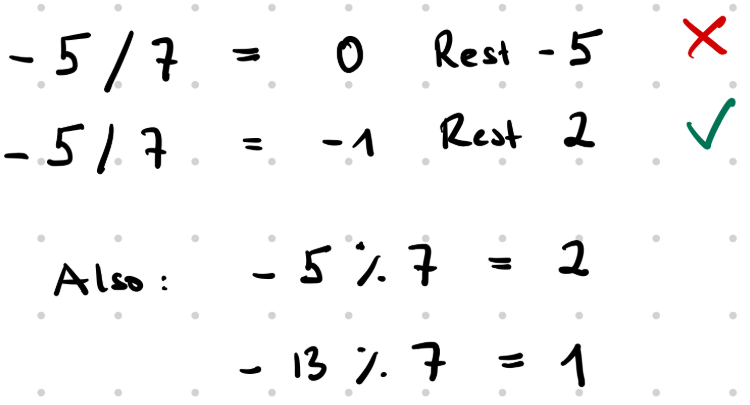 - 5 / 7 = 0 Rest - 5 ✗
- 5 / 7 = - 1 Rest 2 ✓
Also: - 5 % 7 = 2
- 13 % 7 = 1